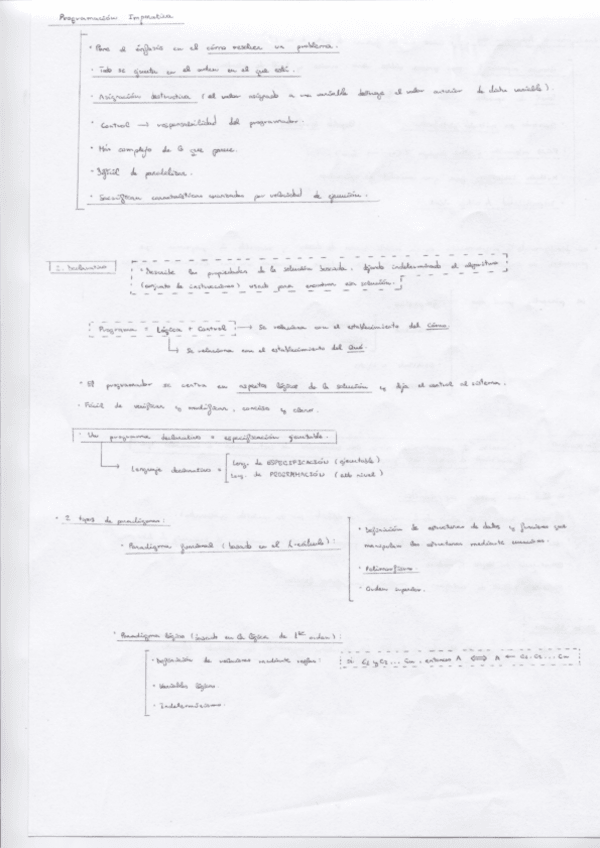 Programación Imperativa
· Pone el énfasis en el cómo resolver un problema.
· Todo se ejecuta en el orden en el que está.
· Asignación destructiva (el valor asignado a una variable destruye el valor anterior de dicha variable).
· Control → responsabilidad del programador.
· Más complejo de lo que parece.
· Difícil de paralelizar.
· Sacrifican características avanzadas por velocidad de ejecución.
P. Declarativa
· Describe las propiedades de la solución buscada, dejando indeterminado el algoritmo
(conjunto de instrucciones) usado para encontrar esa solución.
Programa = Lógica + Control → Se relaciona con el establecimiento del Cómo
→ Se relaciona con el establecimiento del Qué.
· El programador se centra en aspectos lógicos de la solución y deja el control al sistema.
· Fácil de verificar y modificar, conciso y claro.
· Un programa declarativo = especificación ejecutable.
→ Lenguaje declarativo =
Leng. de ESPECIFICACIÓN (ejecutable)
Leng. de PROGRAMACIÓN (alto nivel)
· 2 tipos de paradigmas:
· Paradigma funcional (basado en el λ-cálculo):
· Definición de estructuras de datos y funciones que
manipulan las estructuras mediante ecuaciones.
· Polimorfismo.
· Orden superior.
· Paradigma lógico (basado en la lógica de 1er orden):
· Definición de relaciones mediante reglas:
Si C1 y C2 ... Cn, entonces A ⟺ A ← C1, C2 ... Cn
· Variables lógicas.
· Indeterminismo.